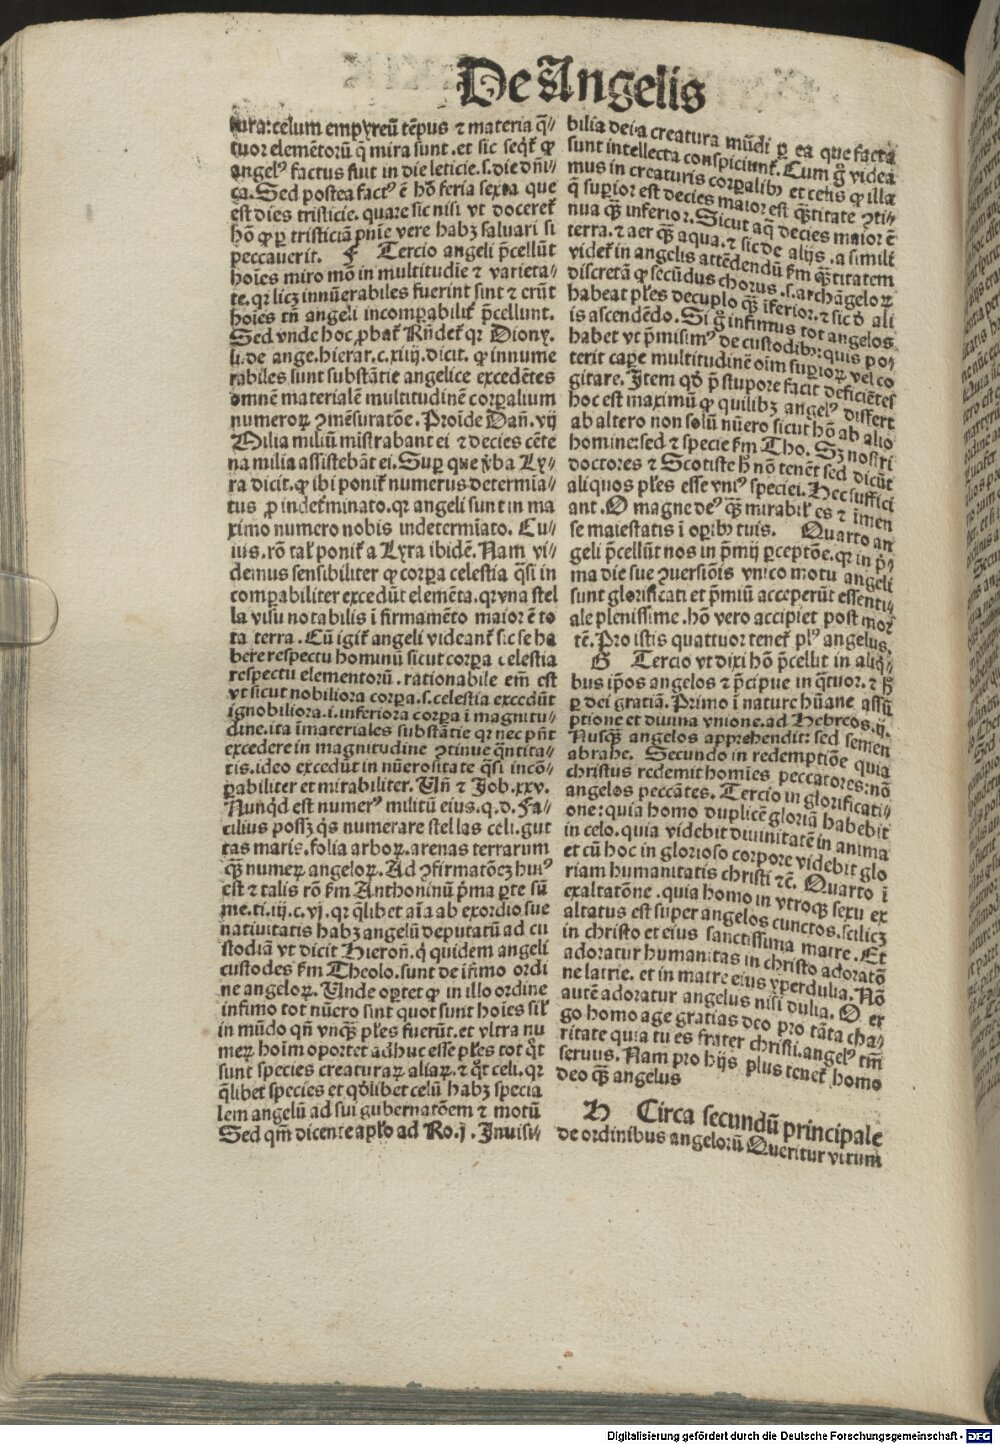 De Angelis
tura: celum empyreũ tẽpus ⁊ materia q̃⸗
tuor elemẽtorũ q̃ mira sunt. et sic seqͭ ꝙ
angelꝰ factus fuit in die leticie .s. die dñi⸗
ca. Sed postea factꝰ ẽ hõ feria sexta que
est dies tristicie. quare sic nisi vt doceretͬ
hõ ꝙ ꝑ tristiciã pñie vere habꝫ saluari si
peccauerit. F Tercio angeli p̃cellũt
hoĩes miro mõ in multitudĩe ⁊ varieta⸗
te. qꝛ licꝫ innũerabiles fuerint sint ⁊ erũt
hoĩes tñ angeli incomꝑabilitͬ p̃cellunt.
Sed vnde hoc ꝓbatͬ Rñdetͬ qꝛ Dionẏ.
li. de ange. hierar. c. xiiij. dicit. ꝙ innume
rabiles sunt substãtie angelice excedẽtes
omnẽ materialẽ multitudinẽ corꝑalium
numeroꝝ ꝯmẽsuratõe. Proĩde Dañ. vij
Milia miliũ mĩstrabant ei ⁊ decies cẽte
na milia assistebãt ei. Suꝑ que v̾ba Ly⸗
ra dicit. ꝙ ibi ponitͬ numerus determĩa⸗
tus ꝓ indetͬminato. qꝛ angeli sunt in ma
ximo numero nobis indetermĩato. Cu⸗
ius. rõ talͬ ponitͬ a Lyra ibidẽ. Nam vi⸗
demus sensibiliter ꝙ corꝑa celestia q̃si in
comꝑabiliter excedũt elemẽta. qꝛ vna stel
la visu notabilis ĩ firmamẽto maior ẽ to
ta terra. Cũ igitͬ angeli videantͬ sic se ha
bere respectu hominũ sicut corꝑa celestia
respectu elementorũ. rationabile em̃ est
vt sicut nobiliora corꝑa .s. celestia excedũt
ignobiliora .i. inferiora corꝑa ĩ magnitu⸗
dine. ita ĩmateriales substãtie qꝛ nec pñt
excedere in magnitudine ꝯtinue q̃ntita⸗
tis. ideo excedũt in nũerositate q̃si incõ⸗
ꝑabiliter et mirabiliter. Vñ ⁊ Job. xxv.
Nunqͩd est numerꝰ militũ eius. q. d. Fa⸗
cilius possꝫ qͥs numerare stellas celi. gut
tas maris. folia arboꝝ. arenas terrarum
qͣ̃ꝫ numeꝝ angeloꝝ. Ad ꝯfirmatõeꝫ huiꝰ
est ⁊ talis rõ ẜm Anthoninũ p̾ma ꝑte sũ
me. ti. iij. c. vj. qꝛ q̃libet aĩa ab exordio sue
natiuitatis habꝫ angelũ deputatũ ad cu
stodiã vt dicit Hieroñ. qͥ quidem angeli
custodes ẜm Theolo. sunt de ĩfimo ordi
ne angeloꝝ. Vnde oꝑtet ꝙ in illo ordine
infimo tot nũero sint quot sunt hoĩes silͬ
in mũdo qñ vnqͣ̃ꝫ pl̃es fuerũt. et vltra nu
meꝝ hoĩm oportet adhuc esse pl̃es tot qͦt
sunt species creaturaꝝ aliaꝝ. ⁊ qͦt celi. qꝛ
q̃libet species et qdlibet celũ habꝫ specia
lem angelũ ad sui gubernatõem ⁊ motũ
Sed qm̃ dicente apl̃o ad Ro. j. Inuisi⸗
bilia dei a creatura mũdi ꝑ ea que facta
sunt intellecta conspiciuntͬ. Cum gͦ videa
mus in creaturis corꝑalibꝰ et celis ꝙ illa
q̃ suꝑior est decies maior est q̃ꝫtitate ꝯti⸗
nua qͣ̃ꝫ inferior. Sicut aq̃ decies maior ẽ
terra. ⁊ aer qͣ̃ꝫ aqua. ⁊ sic de alijs. a simili
videtͬ in angelis attẽdendũ ẜm q̃ꝫtitatem
discretã ꝙ secũdus chorus .s. archãgeloꝝ
habeat pl̃es decuplo qͣ̃ꝫ ĩferior. ⁊ sic ð ali
is ascendẽdo. Si gͦ infimus tot angelos
habet vt p̃misimꝰ de custodibꝰ: quis po⸗
terit caꝑe multitudinẽ oĩm suꝑioꝝ vel co
gitare. Item qd p̃ stupore facit deficiẽtes
hoc est maximũ ꝙ quilibꝫ angelꝰ differt
ab altero non solũ nũero sicut hõ ab alio
homine: sed ⁊ specie ẜm Tho. Sꝫ nostri
doctores ⁊ Scotiste hͦ nõ tenẽt sed dicũt
aliquos pl̃es esse vniꝰ speciei. Hec suffici
ant. O magne deꝰ qͣ̃ꝫ mirabilͬ es ⁊ ĩmen
se maiestatis ĩ oꝑibꝰ tuis. Quarto an
geli p̃cellũt nos in p̃mij ꝑceptõe. qꝛ in p̾⸗
ma die sue ꝯuersiõis vnico motu angeli
sunt glorificati et p̃miũ acceperũt essenti⸗
ale plenissime. hõ vero accipiet post mor
tẽ. Pro istis quattuor tenetͬ plꝰ angelus.
G Tercio vt dixi hõ p̃cellit in aliqͥ⸗
bus ip̃os angelos ⁊ p̃cipue in q̃tuor. ⁊ hͦ
ꝑ dei gratiã. Primo ĩ nature hũane assũ
ptione et diuina vnione. ad Hebreos. ij.
Nusqͣ̃ꝫ angelos apprehendit: sed semen
abrahe. Secundo in redemptiõe quia
christus redemit homĩes peccatores: nõ
angelos peccãtes. Tercio in glorificati⸗
one: quia homo duplicẽ gloriã habebit
in celo. quia videbit diuinitatẽ in anima
et cũ hoc in glorioso corpore videbit glo
riam humanitatis christi ⁊cẽ. Quarto ĩ
exaltatõne. quia homo in vtroqꝫ sexu ex
altatus est super angelos cunctos. scilicꝫ
in christo et eius sanctissima matre. Et
adoratur humanitas in christo adoratõ
ne latrie. et in matre eius yperdulia. Nõ
autẽ adoratur angelus nisi dulia. O er
go homo age gratias deo pro tãta cha⸗
ritate quia tu es frater christi. angelꝰ tm̃
seruus. Nam pro hijs plus tenetͬ homo
deo qͣ̃ꝫ angelus
H Circa secundũ principale
de ordinibus angelorũ Queritur vtrum
Digitalisierung gefördert durch die Deutsche Forschungsgemeinschaft - DFG